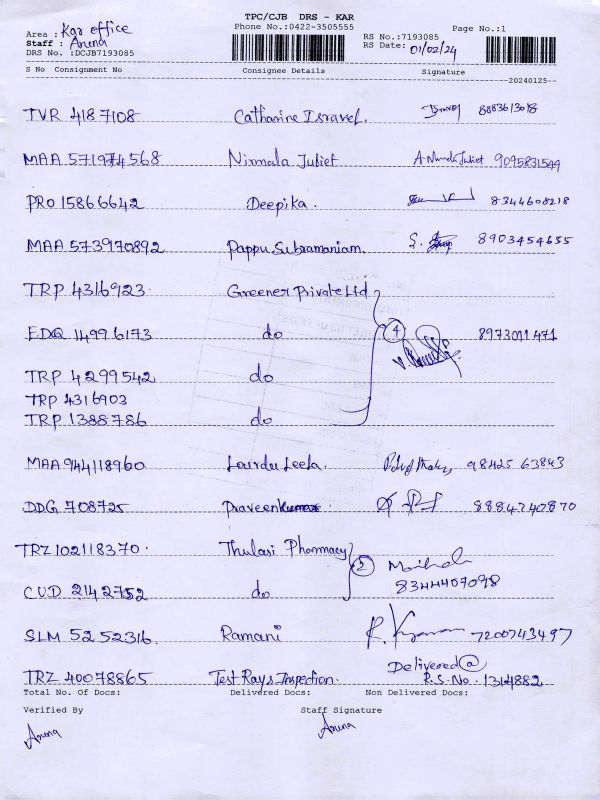 TPC/CJB DRS - KAR
Phone No.:0422-3505555
Page No.:1
Area : Kar office
RS No.:7193085
Staff : Aruna
RS Date: 01/02/24
DRS No. :DCJB7193085
S No Consignment No Consignee Details Signature
20240125
TVR 4187108 Catharine Isravel. 8883613018
MAA 571974568 Nirmala Juliet A. Nirmala Juliet 9095831549
PRO 15866642 Deepika. 8344608218
MAA 573970892 Pappu Subramaniam. S. 8903454655
TRP 4316923. Greener Private Ltd
EDQ 14996173 do 4 8973011471
TRP 4299542 do
TRP 4316903
TRP 1388786 do
MAA 944118960 Lourdu Leela. 98425 63843
DDG 708725 Praveenkumar 8884740870
TRZ 102118370. Thulasi Pharmacy
CUD 2142752 do 2 8344407098
SLM 5252316. Ramani 7200743497
TRZ 40078865 Test Rays Inspection. Delivered @
R.S. No. 1314882
Total No. Of Docs: Delivered Docs: Non Delivered Docs:
Verified By Staff Signature
Aruna Aruna